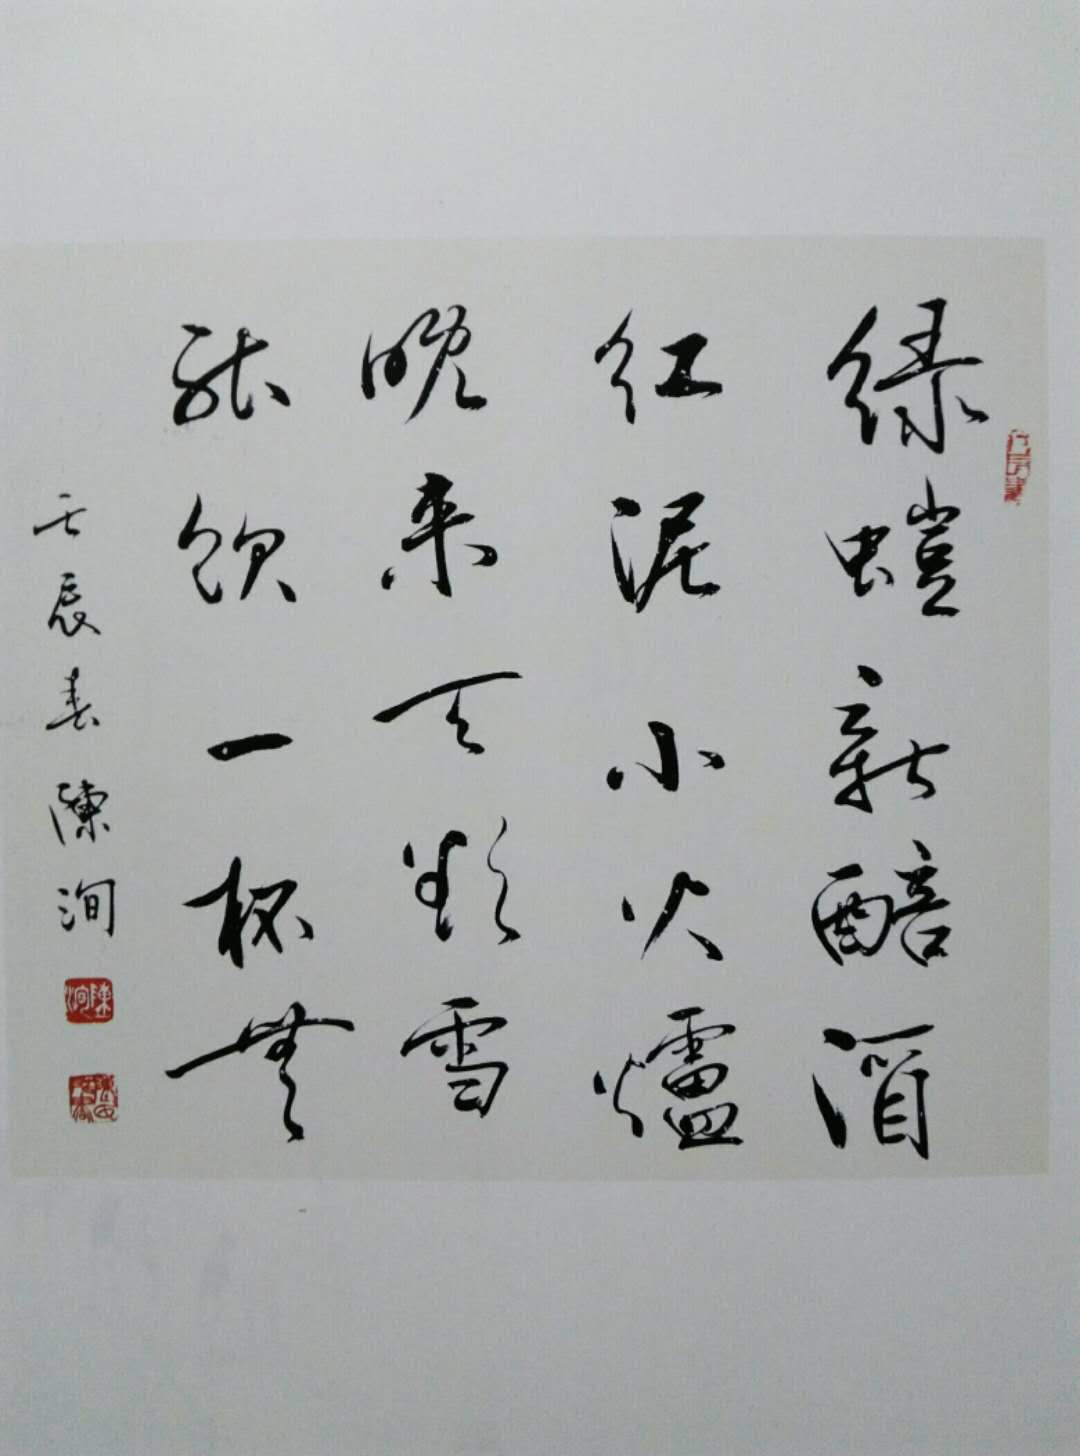 綠螘新醅酒
紅泥小火爐
晚来天欲雪
能飲一杯無
壬辰春陳洵
陳洵